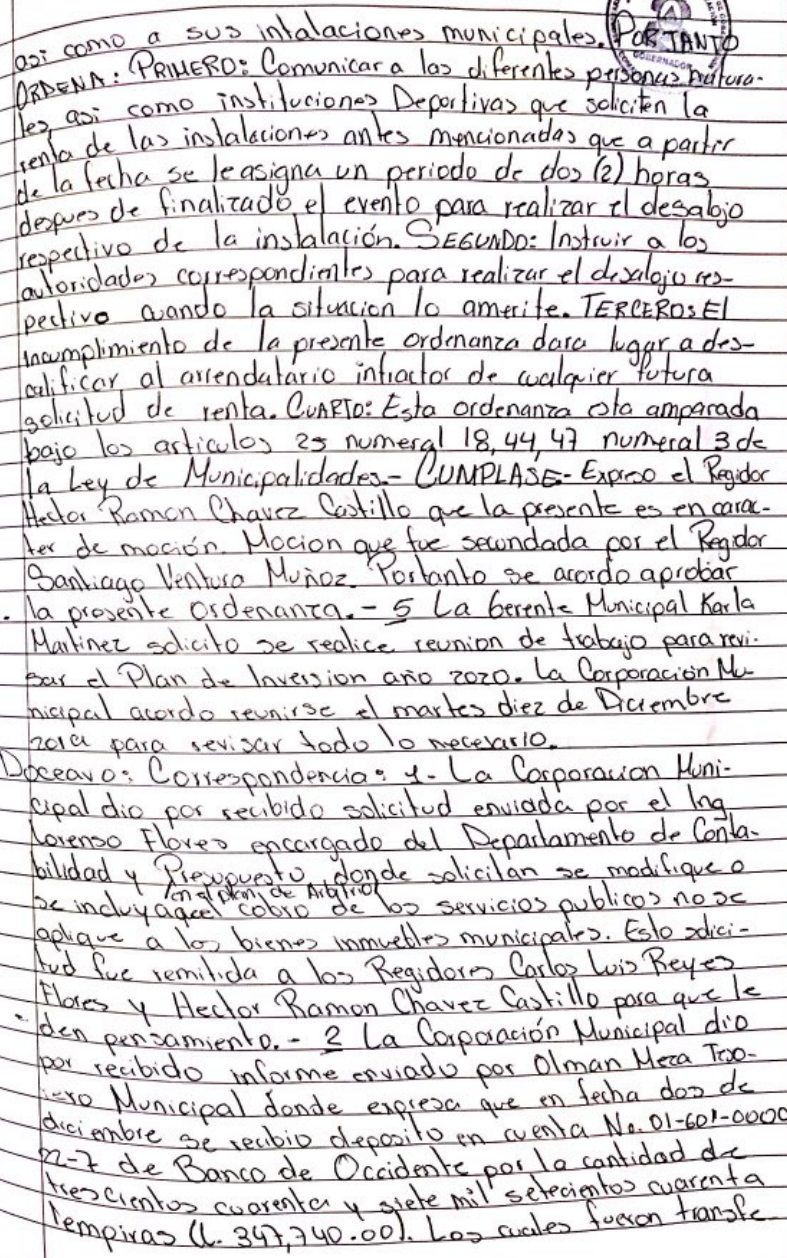 asi como a sus intalaciones municipales. POR TANTO
ORDENA: PRIMERO: Comunicar a las diferentes personas natura-
les asi como instituciones Deportivas que soliciten la
renta de las instalaciones antes mencionadas que a partir
de la fecha se le asigna un periodo de dos (2) horas
despues de finalizado el evento para realizar el desalojo
respectivo de la instalación. SEGUNDO: Instruir a los
autoridades correspondientes para realizar el desalojo res-
pectivo cuando la situacion lo amerite. TERCERO: El
incumplimiento de la presente ordenanza dara lugar a des-
calificar al arrendatario infractor de cualquier futura
solicitud de renta. CUARTO: Esta ordenanza esta amparada
bajo los articulos 25 numeral 18, 44, 47 numeral 3 de
la Ley de Municipalidades.- CUMPLASE- Expreso el Regidor
Hector Ramon Chavez Castillo que la presente es en carac-
ter de moción. Mocion que fue secundada por el Regidor
Santiago Ventura Muñoz. Portanto se acordo aprobar
la presente ordenanza.- 5 La Gerente Municipal Karla
Martinez solicito se realice reunion de trabajo para revi-
sar el Plan de Inversion año 2020. La Corporación Mu-
nicipal acordo reunirse el martes diez de Diciembre
2019 para revisar todo lo necesario.
Doceavo: Correspondencia: 1- La Corporacion Muni-
cipal dio por recibido solicitud enviada por el Ing
Lorenso Flores encargado del Departamento de Conta-
bilidad y Presupuesto, donde solicitan se modifique o
en el plan de Arbitrio
se incluya que el cobro de los servicios publicos no se
aplique a los bienes inmuebles municipales. Esto solici-
tud fue remitida a los Regidores Carlos Luis Reyes
Flores y Hector Ramon Chavez Castillo para que le
den pensamiento.- 2 La Corporación Municipal dio
por recibido informe enviado por Olman Meza Teso-
rero Municipal donde expresa que en fecha dos de
diciembre se recibio deposito en cuenta No. 01-601-0000
-7 de Banco de Occidente por la cantidad de
trescientos cuarenta y siete mil setecientos cuarenta
lempiras (L. 347,740.00). Los cuales fueron transfe